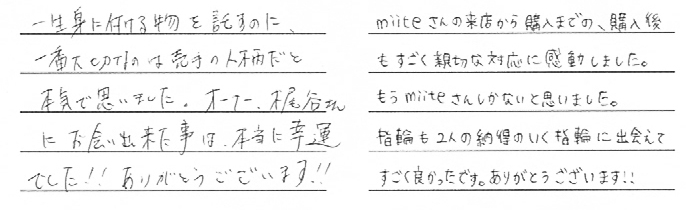 一生身に付ける物を託すのに、
一番大切なのは売手の人柄だと
本気で思いました。オーナー、梶谷さん
にお会い出来た事は、本当に幸運
でした!!ありがとうございます!!
miiteさんの来店から購入までの、購入後
もすごく親切な対応に感動しました。
もうmiiteさんしかないと思いました。
指輪も2人の納得のいく指輪に出会えて
すごく良かったです。ありがとうございます!!